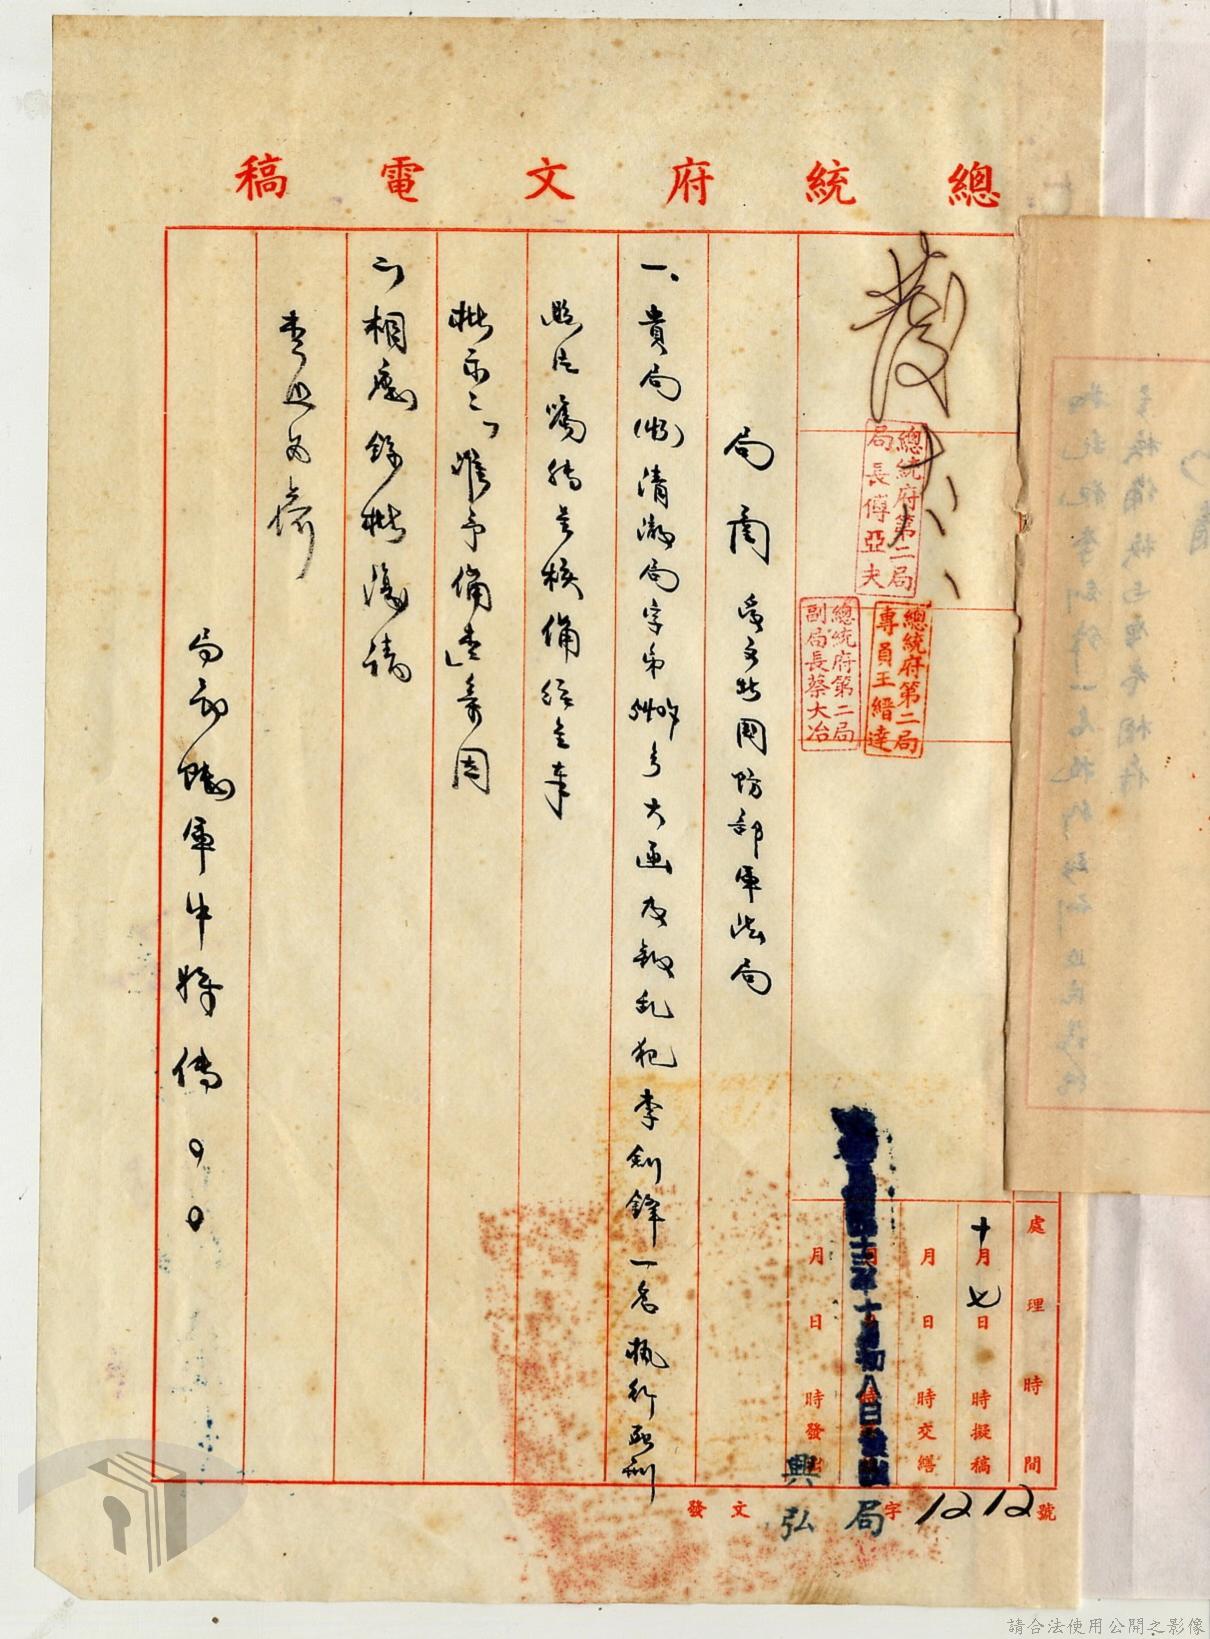 總統府文電稿
發
總統府第二局
局長傅亞夫
總統府第二局
專員王縉達
總統府第二局
副局長蔡大冶
處理時間
十月七日時擬稿
月日時交繕
十月初八日
月日時發出
局函 受文者國防部軍法局
一、貴局清澈局字第 號大函及叛乱犯李劍鋒一名執行死刑
照片嘱轉呈核備經呈奉
批示:「准予備查」等因
二、相應錄批復請
查照為荷
局戳 陸軍中將傅○○
發文 興弘局字1212號
請合法使用公開之影像